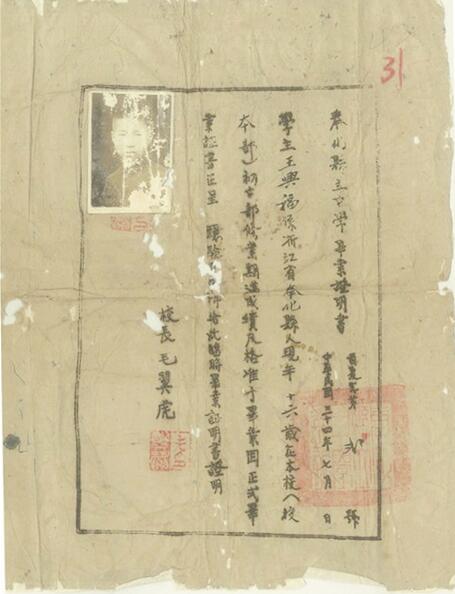 31
奉化縣立中學畢業證明書
號
中華民國三十四年七月 日
學生王興福係浙江省奉化縣人現年十六歲在本校(校
本部)初中部修業期滿成績及格准予畢業因正式畢
業證書正呈 驗印
臨時畢業証明書證明
校長毛翼虎